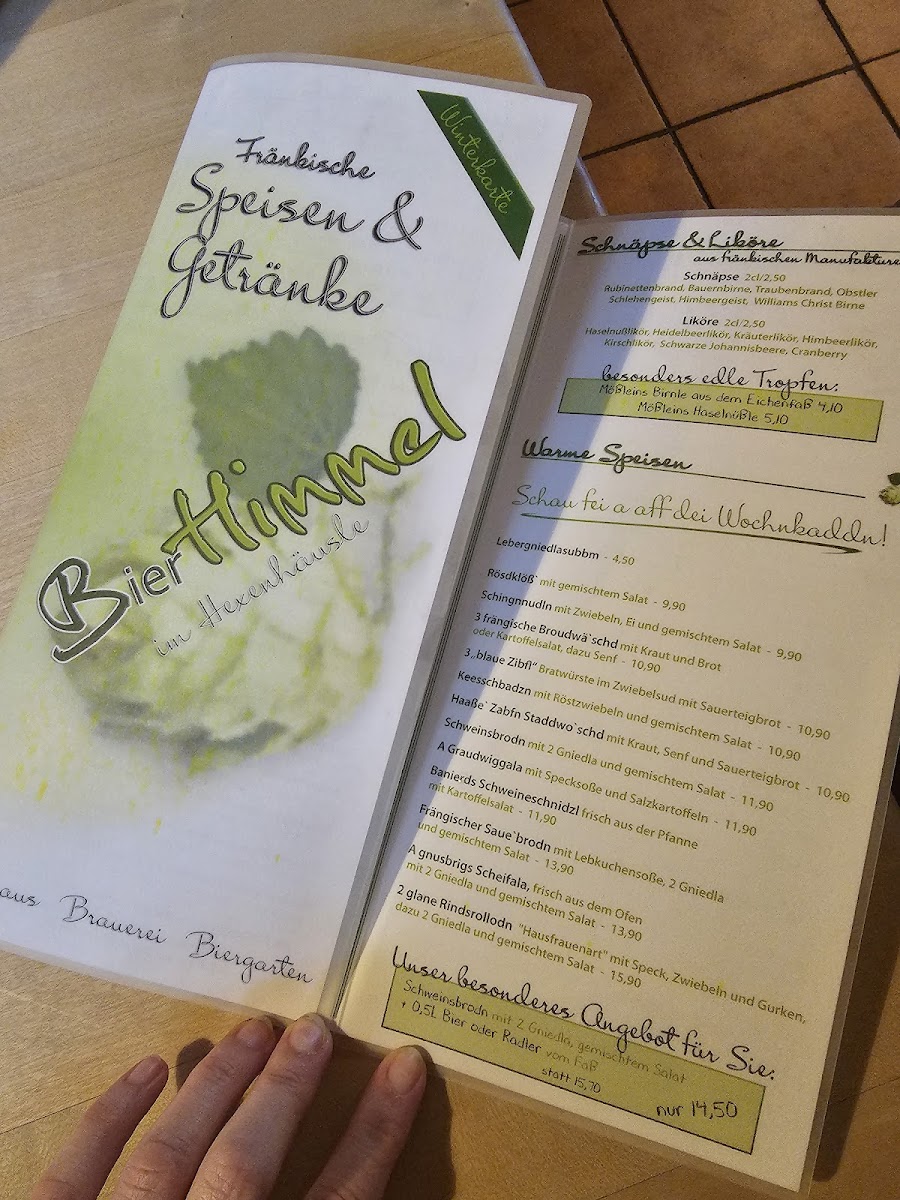 Winterkarte
Fränkische
Speisen &
Getränke
BierHimmel
im Hexenhäusle
aus Brauerei Biergarten
Schnäpse & Liköre
aus fränkischen Manufakture
Schnäpse 2cl/2,50
Rubinettenbrand, Bauernbirne, Traubenbrand, Obstler
Schlehengeist, Himbeergeist, Williams Christ Birne
Liköre 2cl/2,50
Haselnußlikör, Heidelbeerlikör, Kräuterlikör, Himbeerlikör,
Kirschlikör, Schwarze Johannisbeere, Cranberry
besonders edle Tropfen:
Mößleins Birnle aus dem Eichenfaß 4,10
Mößleins Haselnüßle 5,10
Warme Speisen
Schau fei a aff dei Wochnkaddn!
Lebergniedlasubbm - 4,50
Rösdklöß` mit gemischtem Salat - 9,90
Schingnnudln mit Zwiebeln, Ei und gemischtem Salat - 9,90
3 frängische Broudwä`schd mit Kraut und Brot
oder Kartoffelsalat, dazu Senf - 10,90
3 „blaue Zibfl“ Bratwürste im Zwiebelsud mit Sauerteigbrot - 10,90
Keesschbadzn mit Röstzwiebeln und gemischtem Salat - 10,90
Haaße` Zabfn Staddwo`schd mit Kraut, Senf und Sauerteigbrot - 10,90
Schweinsbrodn mit 2 Gniedla und gemischtem Salat - 11,90
A Graudwiggala mit Specksoße und Salzkartoffeln - 11,90
Banierds Schweineschnidzl frisch aus der Pfanne
mit Kartoffelsalat - 11,90
Frängischer Saue`brodn mit Lebkuchensoße, 2 Gniedla
und gemischtem Salat - 13,90
A gnusbrigs Scheifala, frisch aus dem Ofen
mit 2 Gniedla und gemischtem Salat - 13,90
2 glane Rindsrollodn "Hausfrauenart" mit Speck, Zwiebeln und Gurken,
dazu 2 Gniedla und gemischtem Salat - 15,90
Unser besonderes Angebot für Sie:
Schweinsbrodn mit 2 Gniedla, gemischtem Salat
+ 0,5L Bier oder Radler vom Faß
statt 15,70
nur 14,50